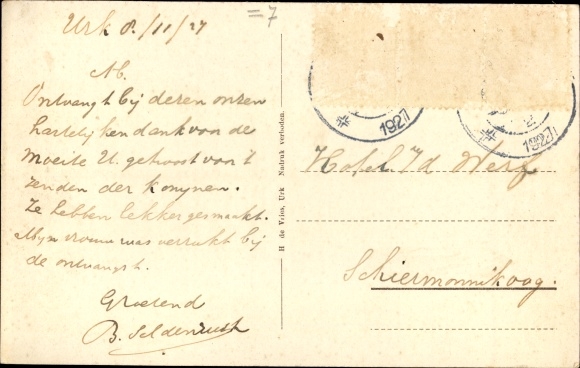 Urk 8./11/27
=7
M.
Ontvangt bij dezen onzen
hartelijken dank voor de
moeite U. getroost voor 't
zenden der konynen.
Ze hebben lekker gesmaakt.
Mijn vrouw was verrukt bij
de ontvangst.
Groetend
B.
H de Vries, Urk Nadruk verboden.
1927
1927
Hotel v/d Werf
Schiermonnikoog.